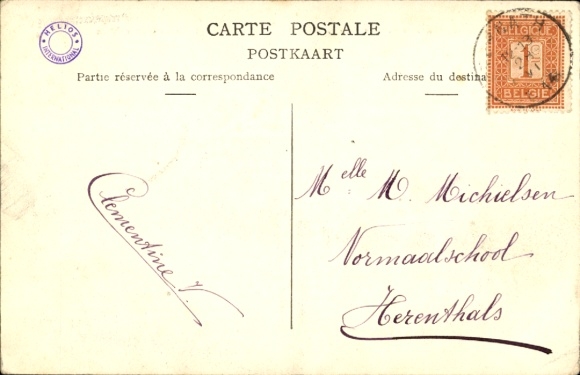 CARTE POSTALE
POSTKAART
Partie réservée à la correspondance
Adresse du destina
HELIOS
INTERNATIONAL
BELGIË
1
Clementine V.
Melle M. Michielsen
Normaalschool
Herenthals